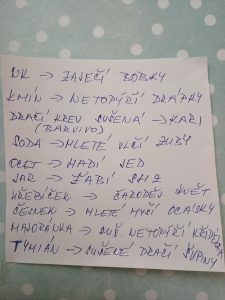 → ZAJEČÍ BOBKY
KMÍN → NETOPÝŘÍ DRÁPKY
DRAČÍ KREV SUŠENÁ → KARI
(BARVIVO)
SODA → MLETÉ VLČÍ ZUBY
OCET → HADÍ JED
→ ŽABÍ
HŘEBÍČEK → ČARODĚJ. KVĚT
ČESNEK → MLETÉ MYŠÍ OCÁSKY
MAJORÁNKA → SUŠ. NETOPÝŘÍ KŘÍDLA
TYMIÁN → SUŠENÉ DRAČÍ ŠUPINY